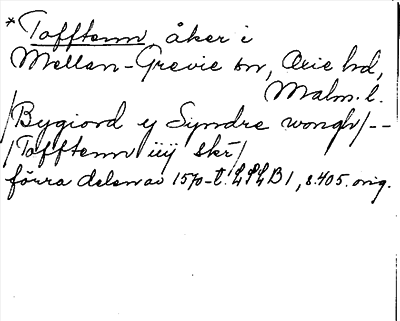 *Tofftenn, åker i
Mellan-Grevie sn, Oxie hd,
Malm. l.
/Bygiord y Syndre wongh/--
/Tofftenn iiij skr/
förra delen av 1570-t. LPLB 1, s. 405. orig.